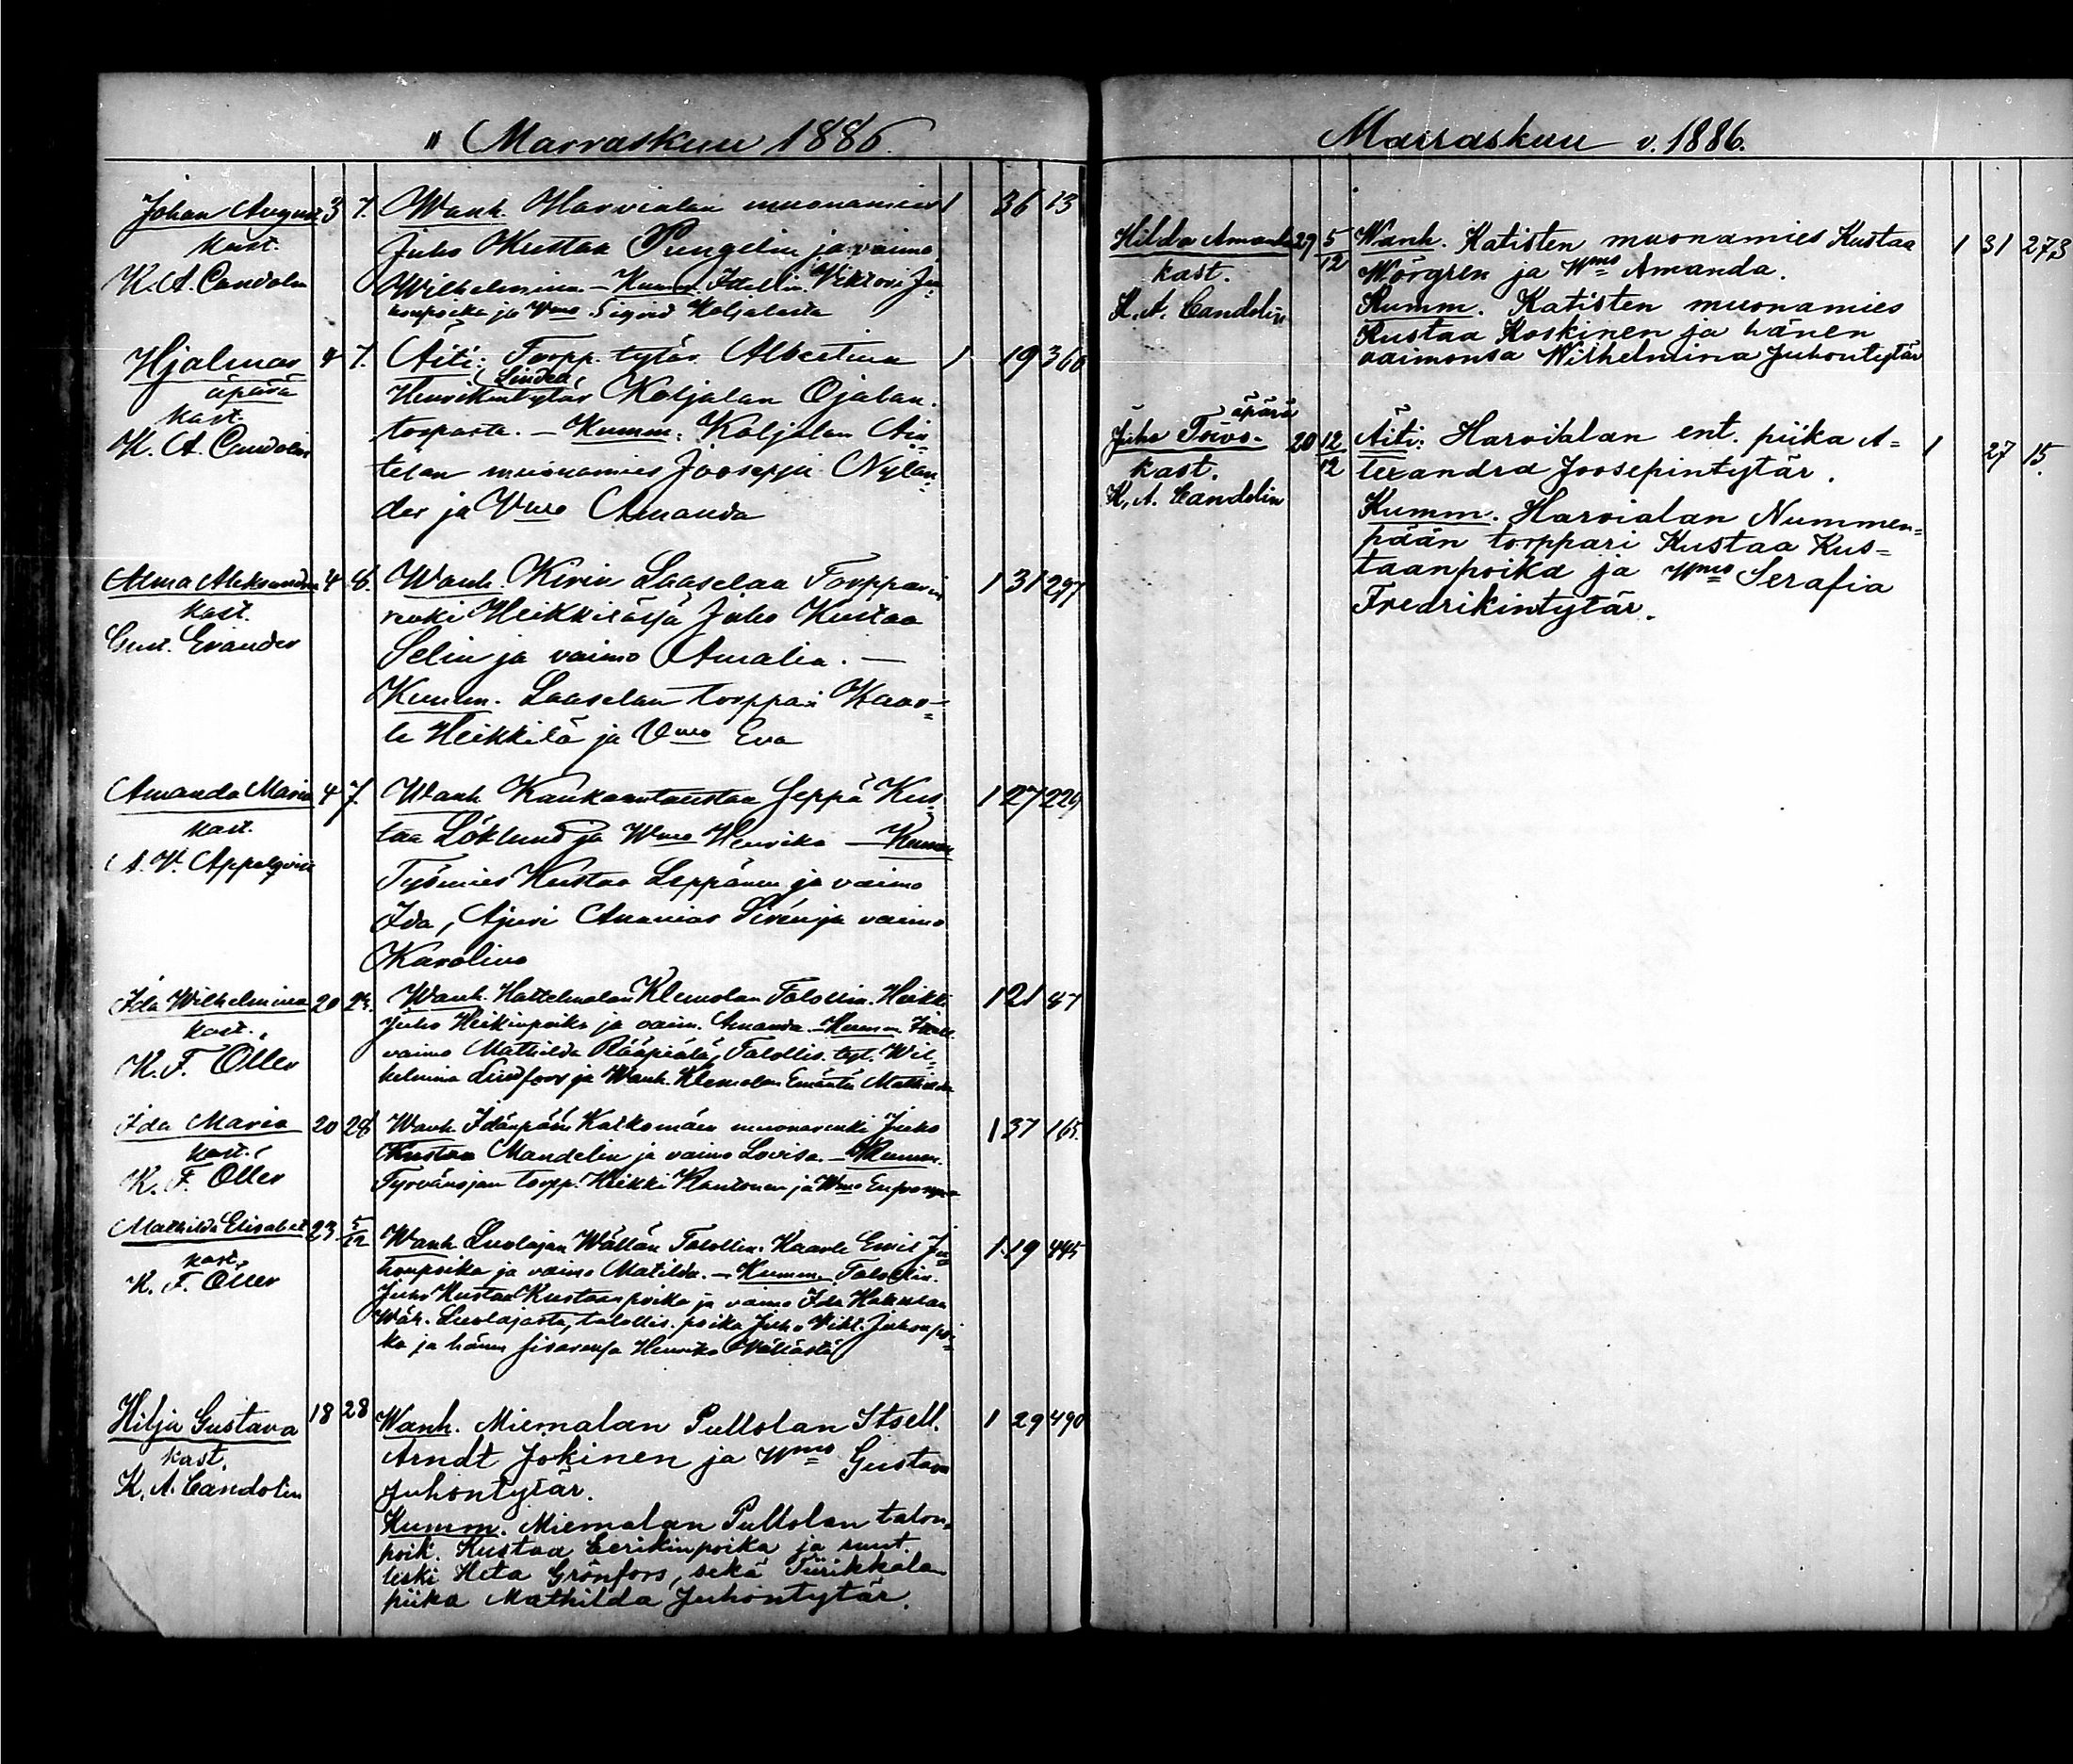 " Marraskuu 1886.
Johan August 3 7. Wanh. Harvialan muonamies 1 36 13
kast. Juho Kustaa Pungelin ja vaimo
K. A. Candolin Wilhelmina. – Kumm. Viktori Ju-
honpoika ja Vmo Sigrid Koljalasta
Hjalmar 4 7. Äiti: Torpp. tytär Albertina 1 19 360
äpärä Lindea
kast. Henrikintytär Koljalan Ojalan
K. A. Candolin torpasta. – Kumm. Koljalan
telan muonamies Jooseppi Nylan-
der ja Vmo Amanda
Alma Aleksandra 4 8. Wanh. Kirin Laaselan Torpparin 1 31 297
kast. renki Heikkilässä Juho Kustaa
Gust. Evander Selin ja vaimo Amalia. –
Kumm. Laaselan torppari Kaar-
le Heikkilä ja Vmo Eva
Amanda Maria 4 7. Wanh. Kankaantaustan Seppä Kus- 1 27 229
kast. taa Löklund ja Wmo Henrika – Kumm.
A. V. Appelqvist Työmies Kustaa Leppänen ja vaimo
Ida, Ajuri Ananias Sirén ja vaimo
Karolina
Ida Wilhelmina 20 Wanh. Hattelmalan Klemolan Talollin. Heikki 1 21 47
kast. Juho Heikinpoika ja vaim. Amanda. – Kumm.
K. F. Oller vaimo Mathilda Rääpiälä, Talollis. tyt. Wil-
helmina Lindfors ja Wanh. Klemolan Emäntä Mathilda
Ida Maria 20 28 Wanh. Idänpään Katkomäen muonarenki Juho 1 37 165
kast. Kustaa Mandelin ja vaimo Lovisa. – Kumm.
K. F. Oller torpp. Heikki Rantonen ja Wmo
Mathilda Elisabet 23 5/12 Wanh. Luolajan Wällän Talollin. Kaarle Emil Ju- 1 19 445
kast. honpoika ja vaimo Matilda. – Kumm. Talollin.
K. F. Oller Juho Kustaa Kustaanpoika ja vaimo Ida Hakulan
Wäh. Luolajasta, talollis. poika Juho Vikt. Juhonpoi-
ka ja hänen sisarensa Henrika Wällästä
Hilja Gustava 18 28 Wanh. Miemalan Pullolan Itsell. 1 29 490
kast. Arndt Jokinen ja Wmo Gustava
K. A. Candolin Juhontytär.
Kumm. Miemalan Pullolan talon-
poik. Kustaa Eerikinpoika ja
leski Heta Grönfors, sekä Tiirikkalan
piika Mathilda Juhontytär.
Marraskuu v. 1886.
Hilda Amanda 29 5/12 Wanh. Katisten muonamies Kustaa 1 31 273
kast. Wörgren ja Wmo Amanda.
K. A. Candolin Kumm. Katisten muonamies
Kustaa Koskinen ja hänen
vaimonsa Wilhelmina Juhontytär
äpärä
Juho Toivo. 20 12/12 Äiti: Harvialan ent. piika A- 1 27 15.
kast. lexandra Joosepintytär.
K. A. Candolin Kumm. Harvialan Nummen-
pään torppari Kustaa Kus-
taanpoika ja Wmo Serafia
Fredrikintytär.